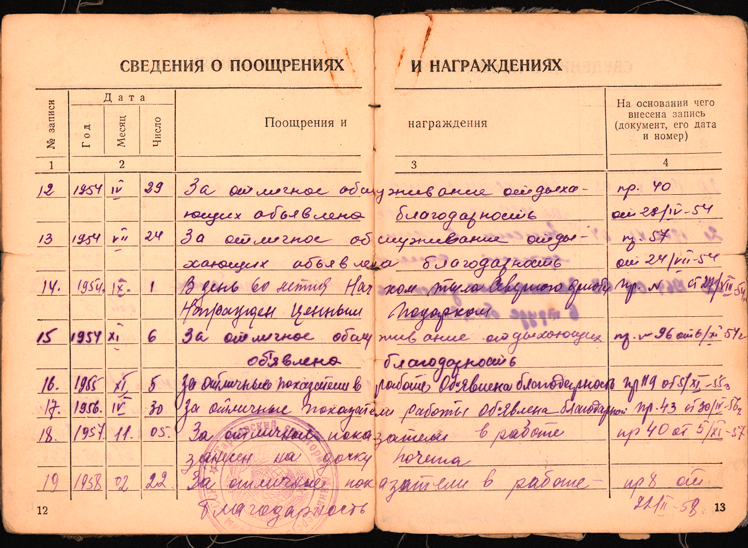 СВЕДЕНИЯ О ПООЩРЕНИЯХ И НАГРАЖДЕНИЯХ
№ записи
Дата
Год
Месяц
Число
Поощрения и награждения
На основании чего
внесена запись
(документ, его дата
и номер)
1 2 3 4
12 1954 IV 29 За отличное обслуживание отдыха- пр. 40
ющих объявлена благодарность от 28/IV-54
13 1954 VII 24 За отличное обслуживание отды- пр. 57
хающих объявлена благодарность от 24/VII-54
14. 1954. IX. 1 В день 60 летия Нач тыла Северного флота пр. № от
Награжден Ценным Подарком
15 1954 XI 6 За отличное обслуживание отдыхающих пр. № 96 от 6/XI-54г
объявлена благодарность
16. 1955 XI 5 За отличные показатели в работе Объявлена благодарность пр 119 от 5/XI-55г
17. 1956. IV 30 За отличные показатели работы Объявлена пр. 43 от 30/IV-56г
18. 1957. 11. 05. За отличные показатели в работе пр 40 от 5/XI-57
занесен на доску почета
19 1958 02 22 За отличные показатели в работе- пр 8 от
Благодарность 22/II-58
12
13